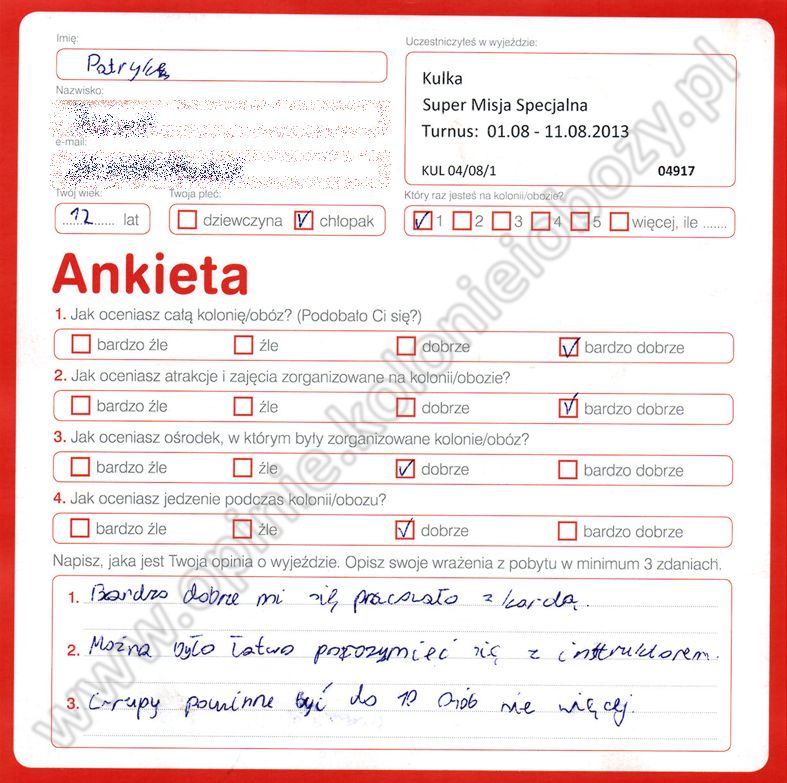 Imię:
Patryk
Uczestniczyłeś w wyjeździe:
Kulka
Super Misja Specjalna
Turnus: 01.08 - 11.08.2013
KUL 04/08/1 04917
Nazwisko:
e-mail:
Twój wiek:
12 lat
Twoja płeć:
dziewczyna chłopak
Który raz jesteś na kolonii/obozie?
1 2 3 4 5 więcej, ile .......
Ankieta
1. Jak oceniasz całą kolonię/obóz? (Podobało Ci się?)
bardzo źle źle dobrze bardzo dobrze
2. Jak oceniasz atrakcje i zajęcia zorganizowane na kolonii/obozie?
bardzo źle źle dobrze bardzo dobrze
3. Jak oceniasz ośrodek, w którym były zorganizowane kolonie/obóz?
bardzo źle źle dobrze bardzo dobrze
4. Jak oceniasz jedzenie podczas kolonii/obozu?
bardzo źle źle dobrze bardzo dobrze
Napisz, jaka jest Twoja opinia o wyjeździe. Opisz swoje wrażenia z pobytu w minimum 3 zdaniach.
1. Bardzo dobrze mi się pracowało z kardą.
2. Można było łatwo porozymieć się z instruktorem.
3. Grupy powinne być do 10 osób nie więcej.
www.opinie.kolonieiobozy.pl